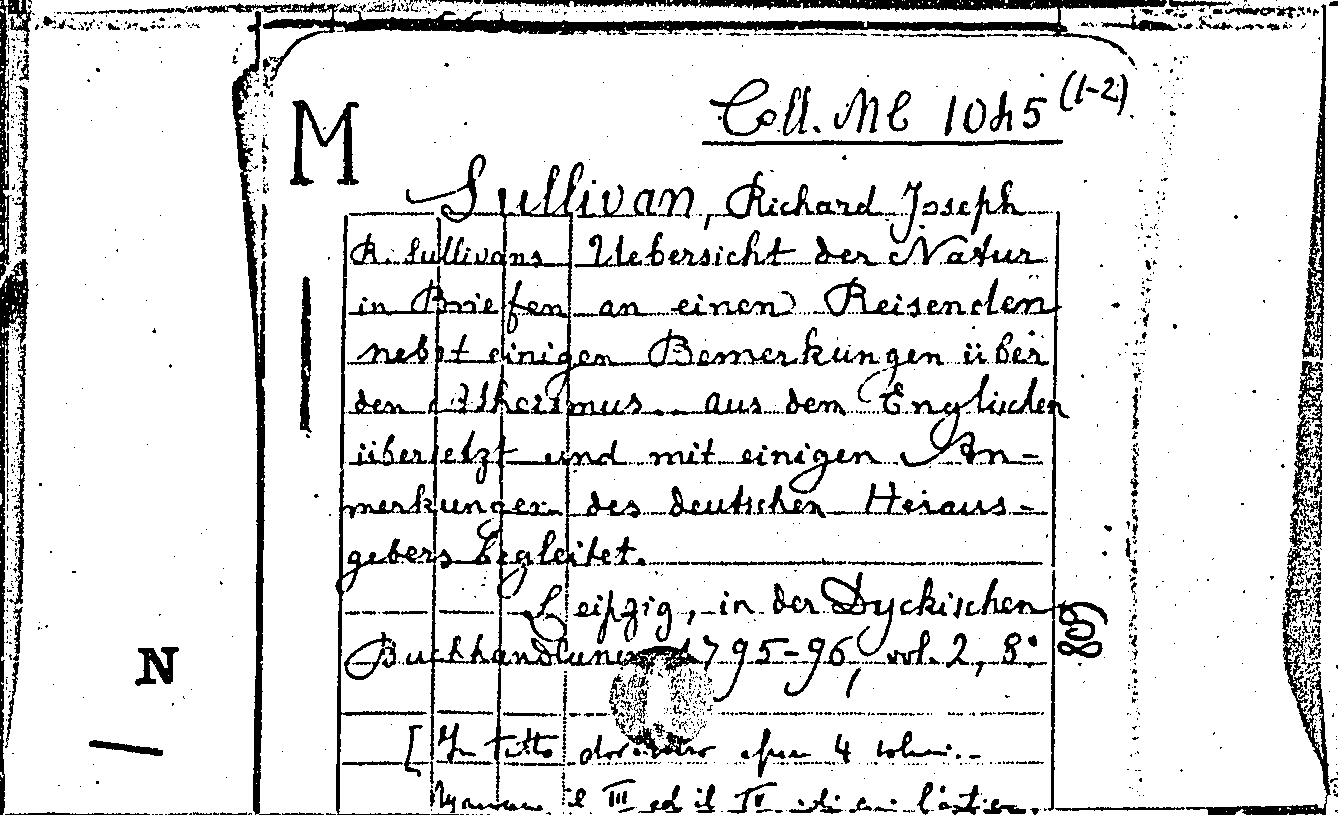 M
Coll. MC 1045 (1-2)
Sullivan, Richard Joseph
R. Sullivans Uebersicht der Natur
in Briefen an einen Reisenden
nebst einigen Bemerkungen über
den Atheismus.. aus dem Englischen
übersetzt und mit einigen An-
merkungen des deutschen Heraus-
gebers begleitet.
Leipzig, in der Dyckischen
Buchhandlung 1795-96, vol. 2, 8°.
N
[In tutto 4
il III ed il IV